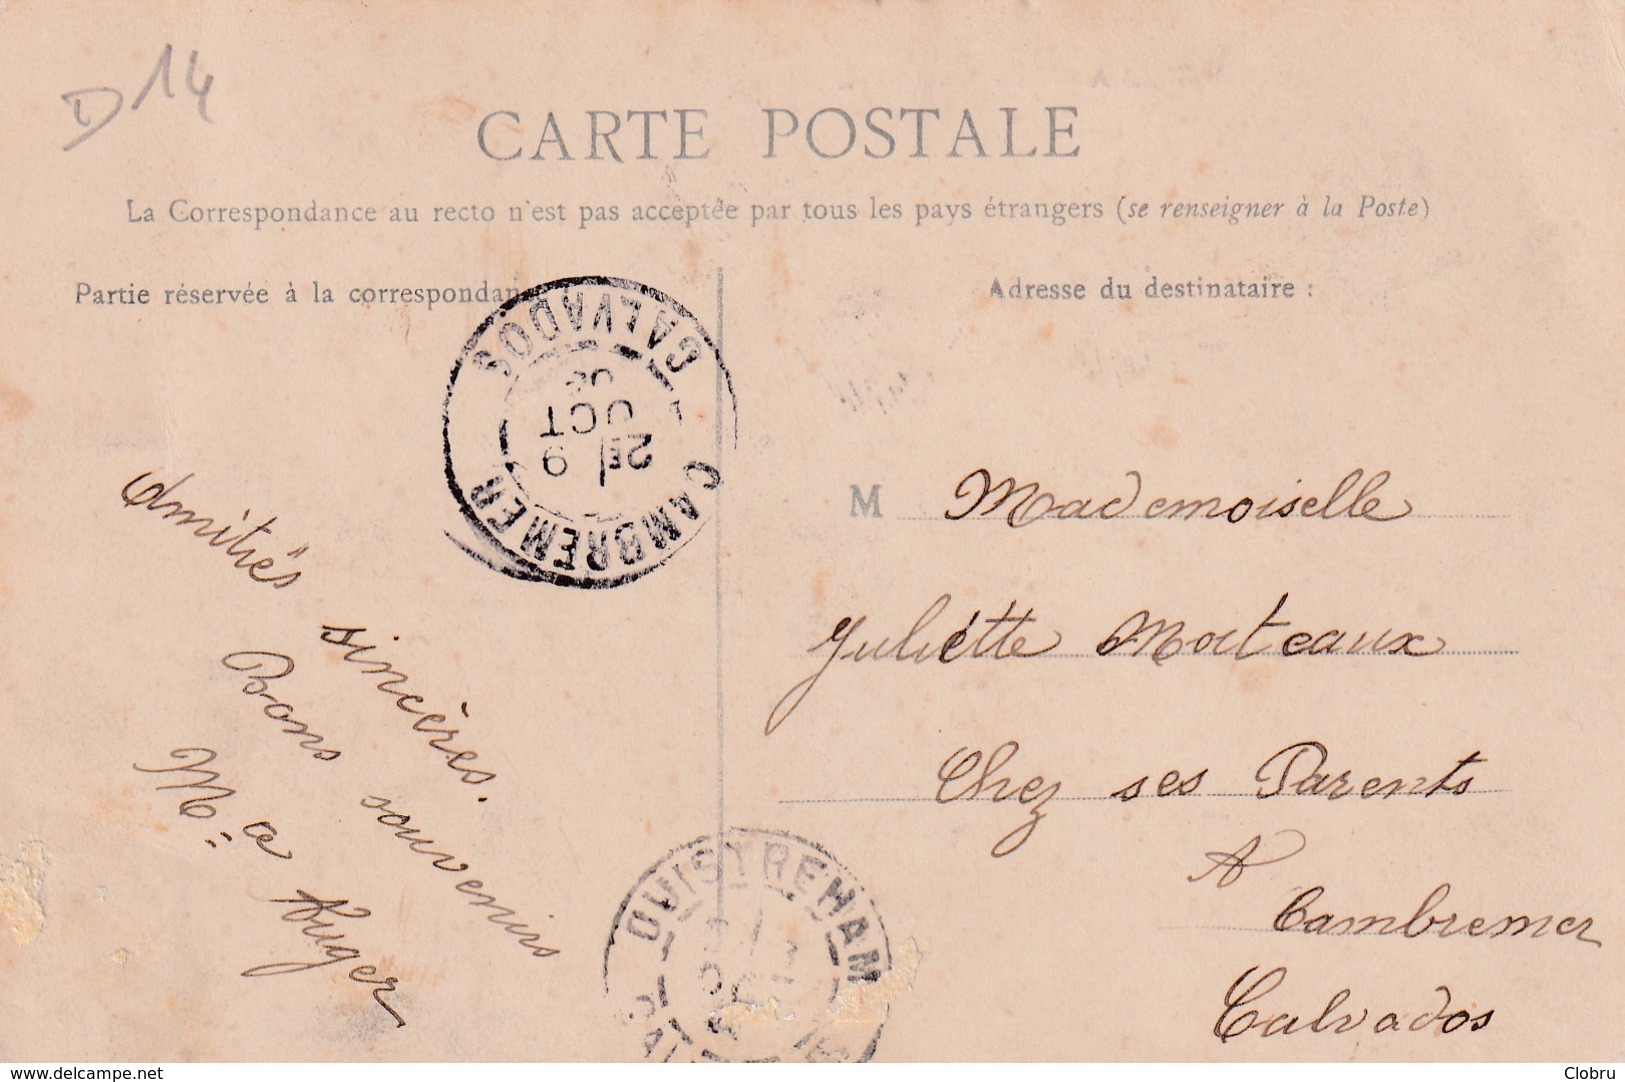 D14
CARTE POSTALE
La Correspondance au recto n'est pas acceptée par tous les pays étrangers (se renseigner à la Poste)
Partie réservée à la correspondan
Adresse du destinataire :
CAMBREMER
CALVADOS
2E 9
OCT
Amitiés sincères.
Bons souvenirs
M. a Auger
M Mademoiselle
Juliette Morteaux
Chez ses Parents
A
Cambremer
Calvados
OUISTREHAM
delcampe.net
Clobru